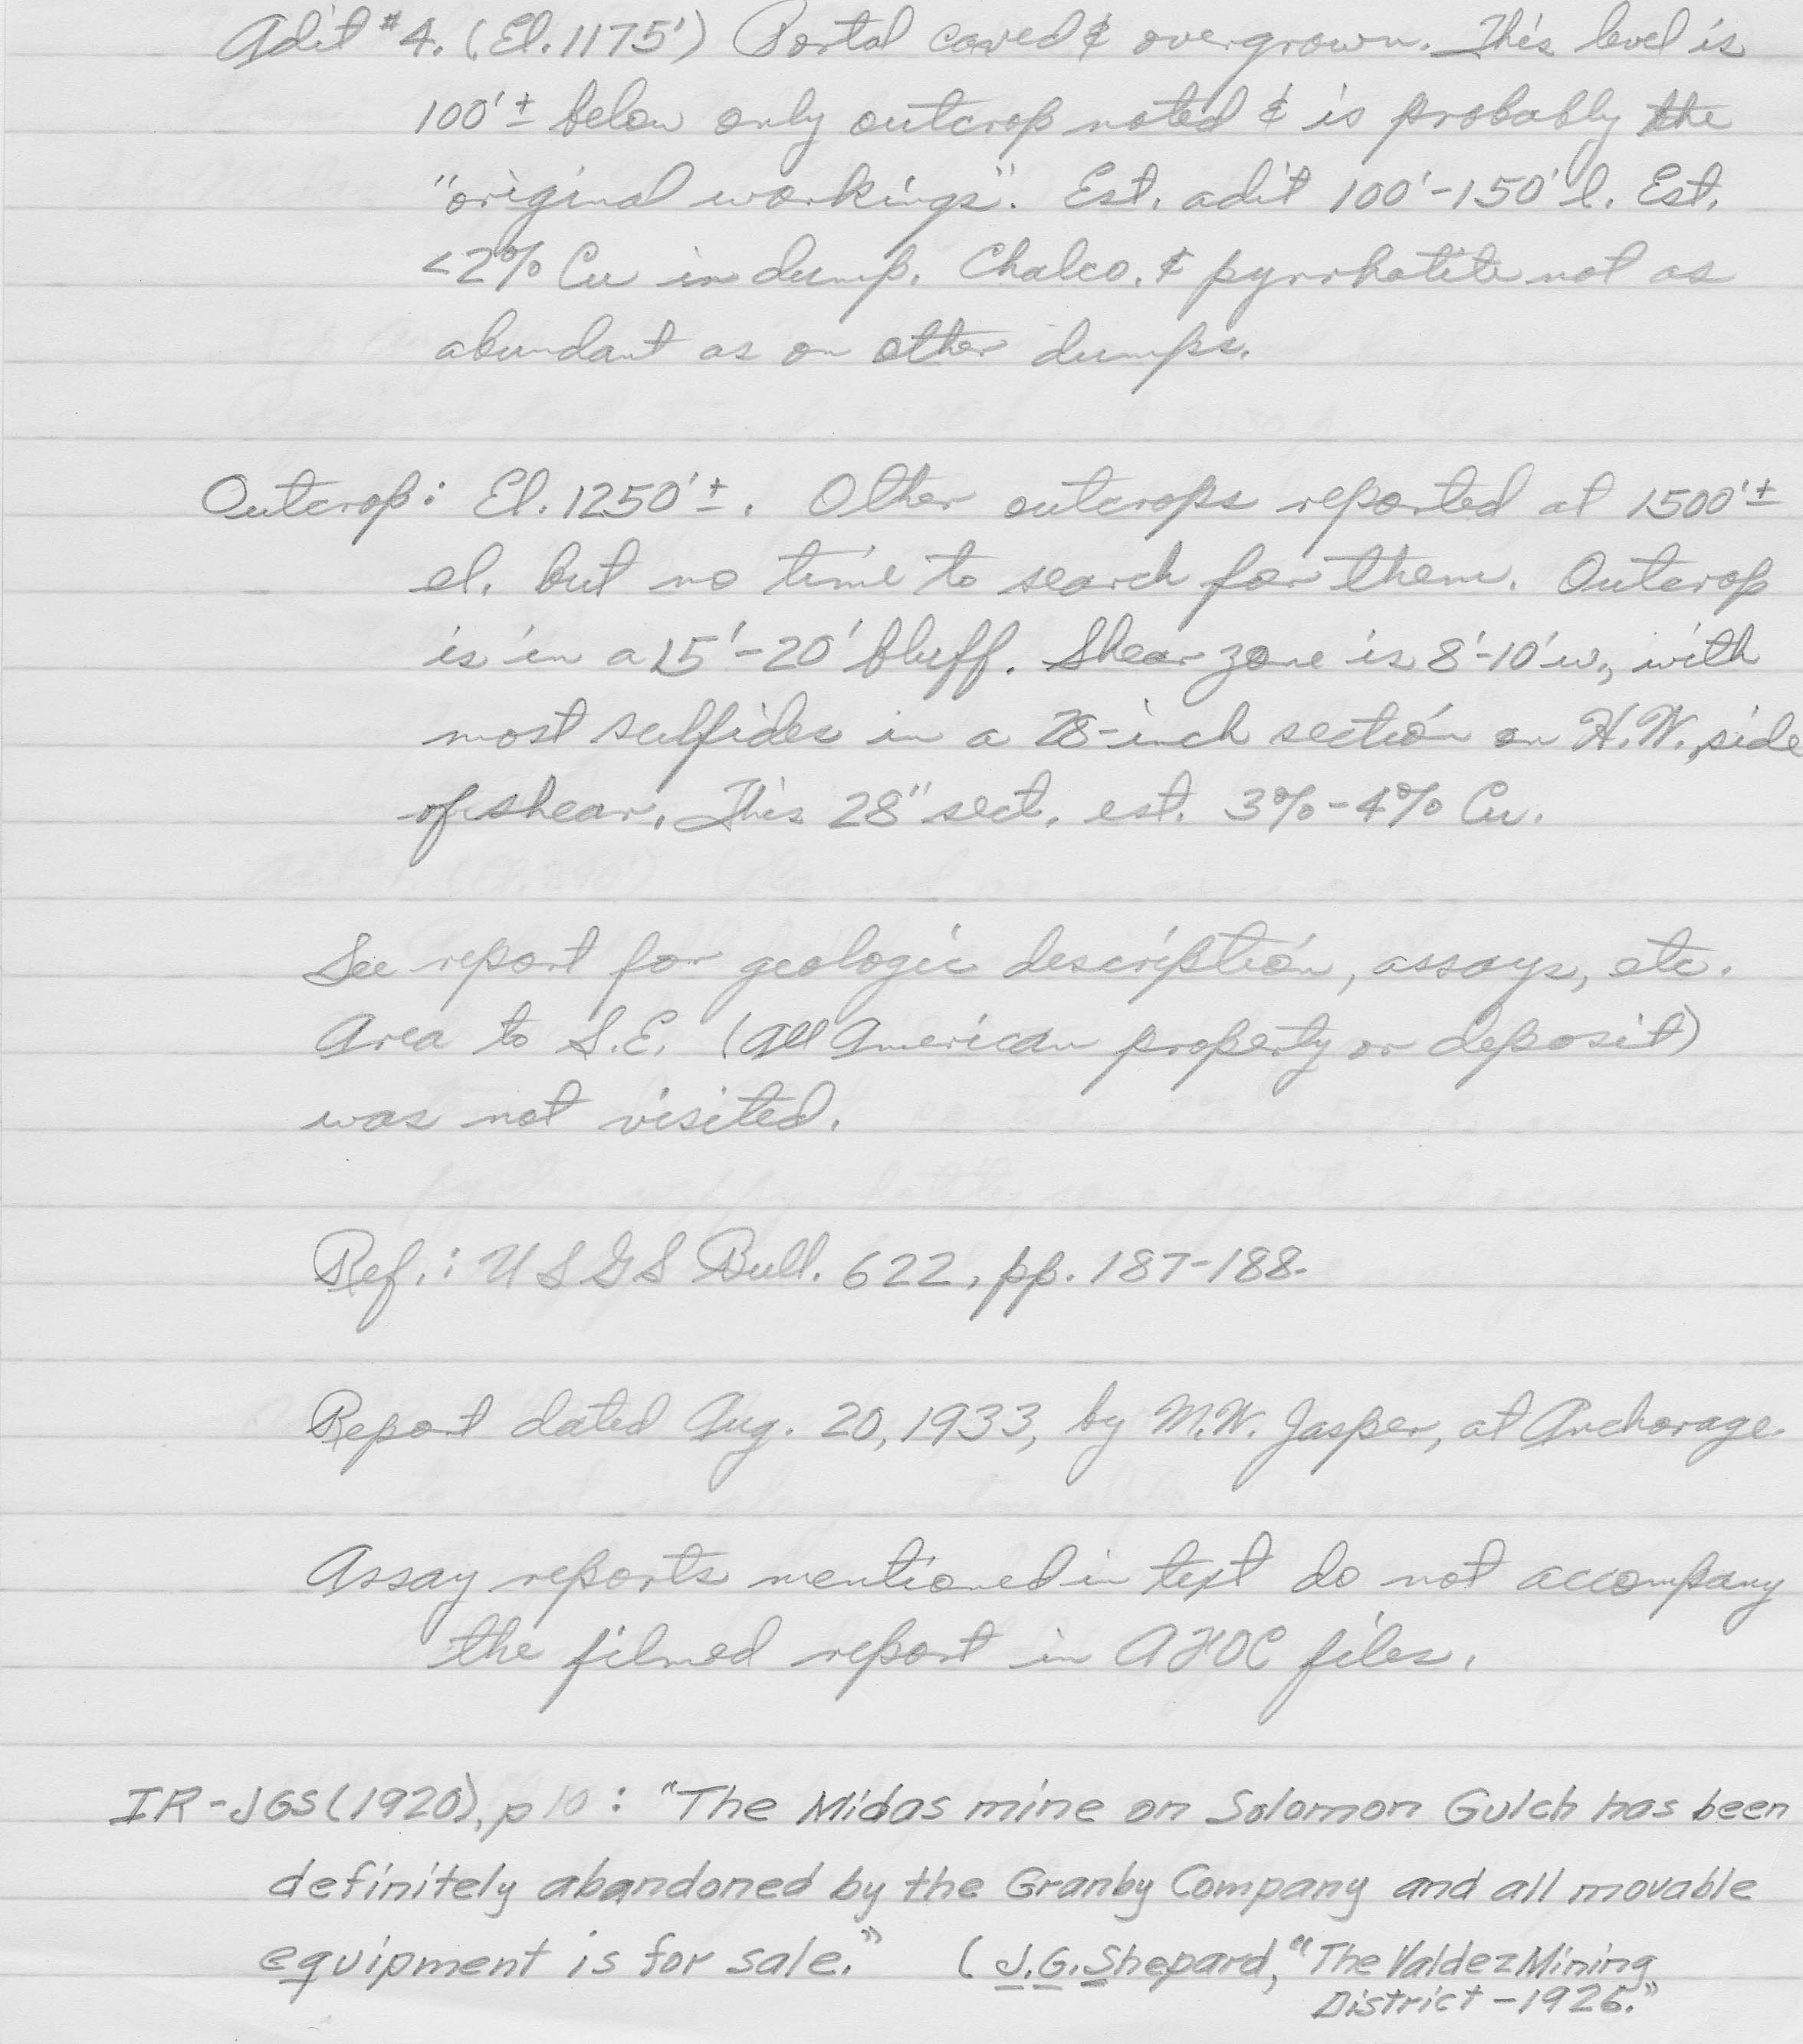 Adit #4. (El. 1175') Portal caved & overgrown. This level is
100'± below only outcrop noted & is probably the
"original workings". Est. adit 100'-150' l. Est.
<2% Cu in dump. Chalco. & pyrrhotite not as
abundant as on other dumps.
Outcrop: El. 1250'±. Other outcrops reported at 1500'±
el. but no time to search for them. Outcrop
is in a 15'-20' bluff. Shear zone is 8'-10' w., with
most sulfides in a 28-inch section on H.W. side
of shear. This 28" sect. est. 3%-4% Cu.
See report for geologic description, assays, etc.
Area to S.E. (All American property or deposit)
was not visited.
Ref.: USGS Bull. 622, pp. 187-188.
Report dated Aug. 20, 1933, by M.W. Jasper, at Anchorage.
Assay reports mentioned in text do not accompany
the filmed report in AFOC files.
IR-JGS(1920), p 10: "The Midas mine on Solomon Gulch has been
definitely abandoned by the Granby Company and all movable
equipment is for sale." (J.G. Shepard, "The Valdez Mining
District - 1926."